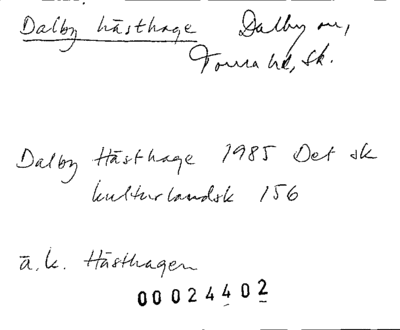 Dalby hästhage Dalby sn,
Torna hd, Sk.
Dalby Hästhage 1985 Det sk
kulturlandsk 156
ä.k. Hästhagen
00024402